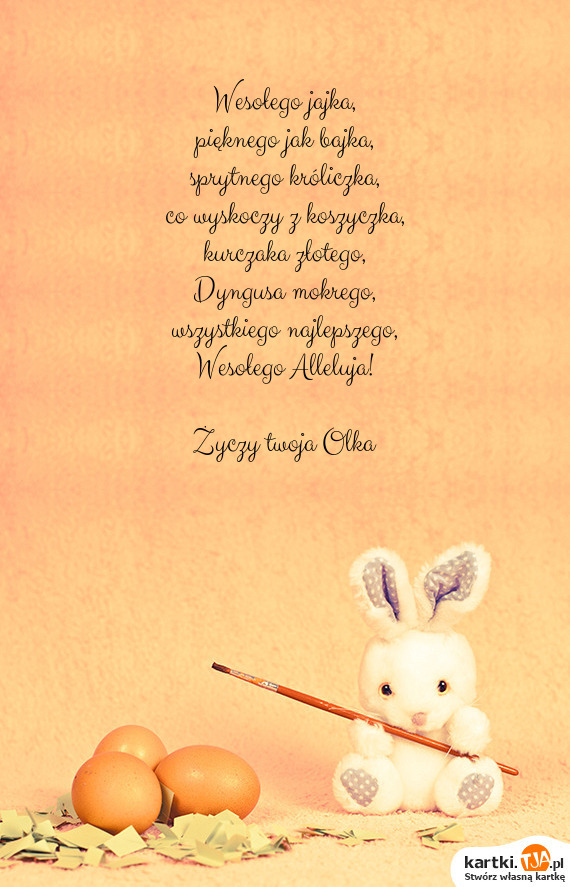 Wesołego jajka,
pięknego jak bajka,
sprytnego króliczka,
co wyskoczy z koszyczka,
kurczaka złotego,
Dyngusa mokrego,
wszystkiego najlepszego,
Wesołego Alleluja!
Życzy twoja Olka
kartki.TJA.pl
Stwórz własną kartkę